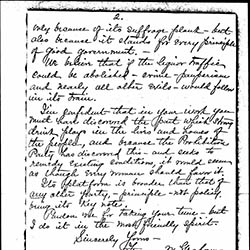 2.
only because of its suffrage plank - but
also because it stands for every principle
of good government. -
We believe that if the liquor traffic
could be abolished - crime - pauperism
and nearly all other evils - would follow
in its train.
I'm confident that in your work you
must have discerned the part which strong
drink plays in the lives and homes of
the people, and because the Prohibition
Party has discerned this - and seeks to
remedy existing conditions, it would seem
as though every woman should favor it.
Its platform is broader than that of
any other party, - principle - not policy,
being its key note.
Pardon me for taking your time - but
I do it in the most friendly spirit.
Sincerely Yours -